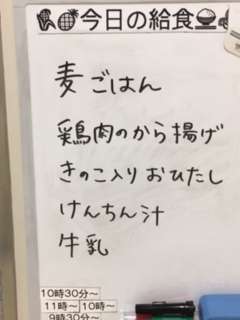 今日の給食
麦ごはん
鶏肉のから揚げ
きのこ入りおひたし
けんちん汁
牛乳
10時30分～
11時～ 10時～
9時30分～